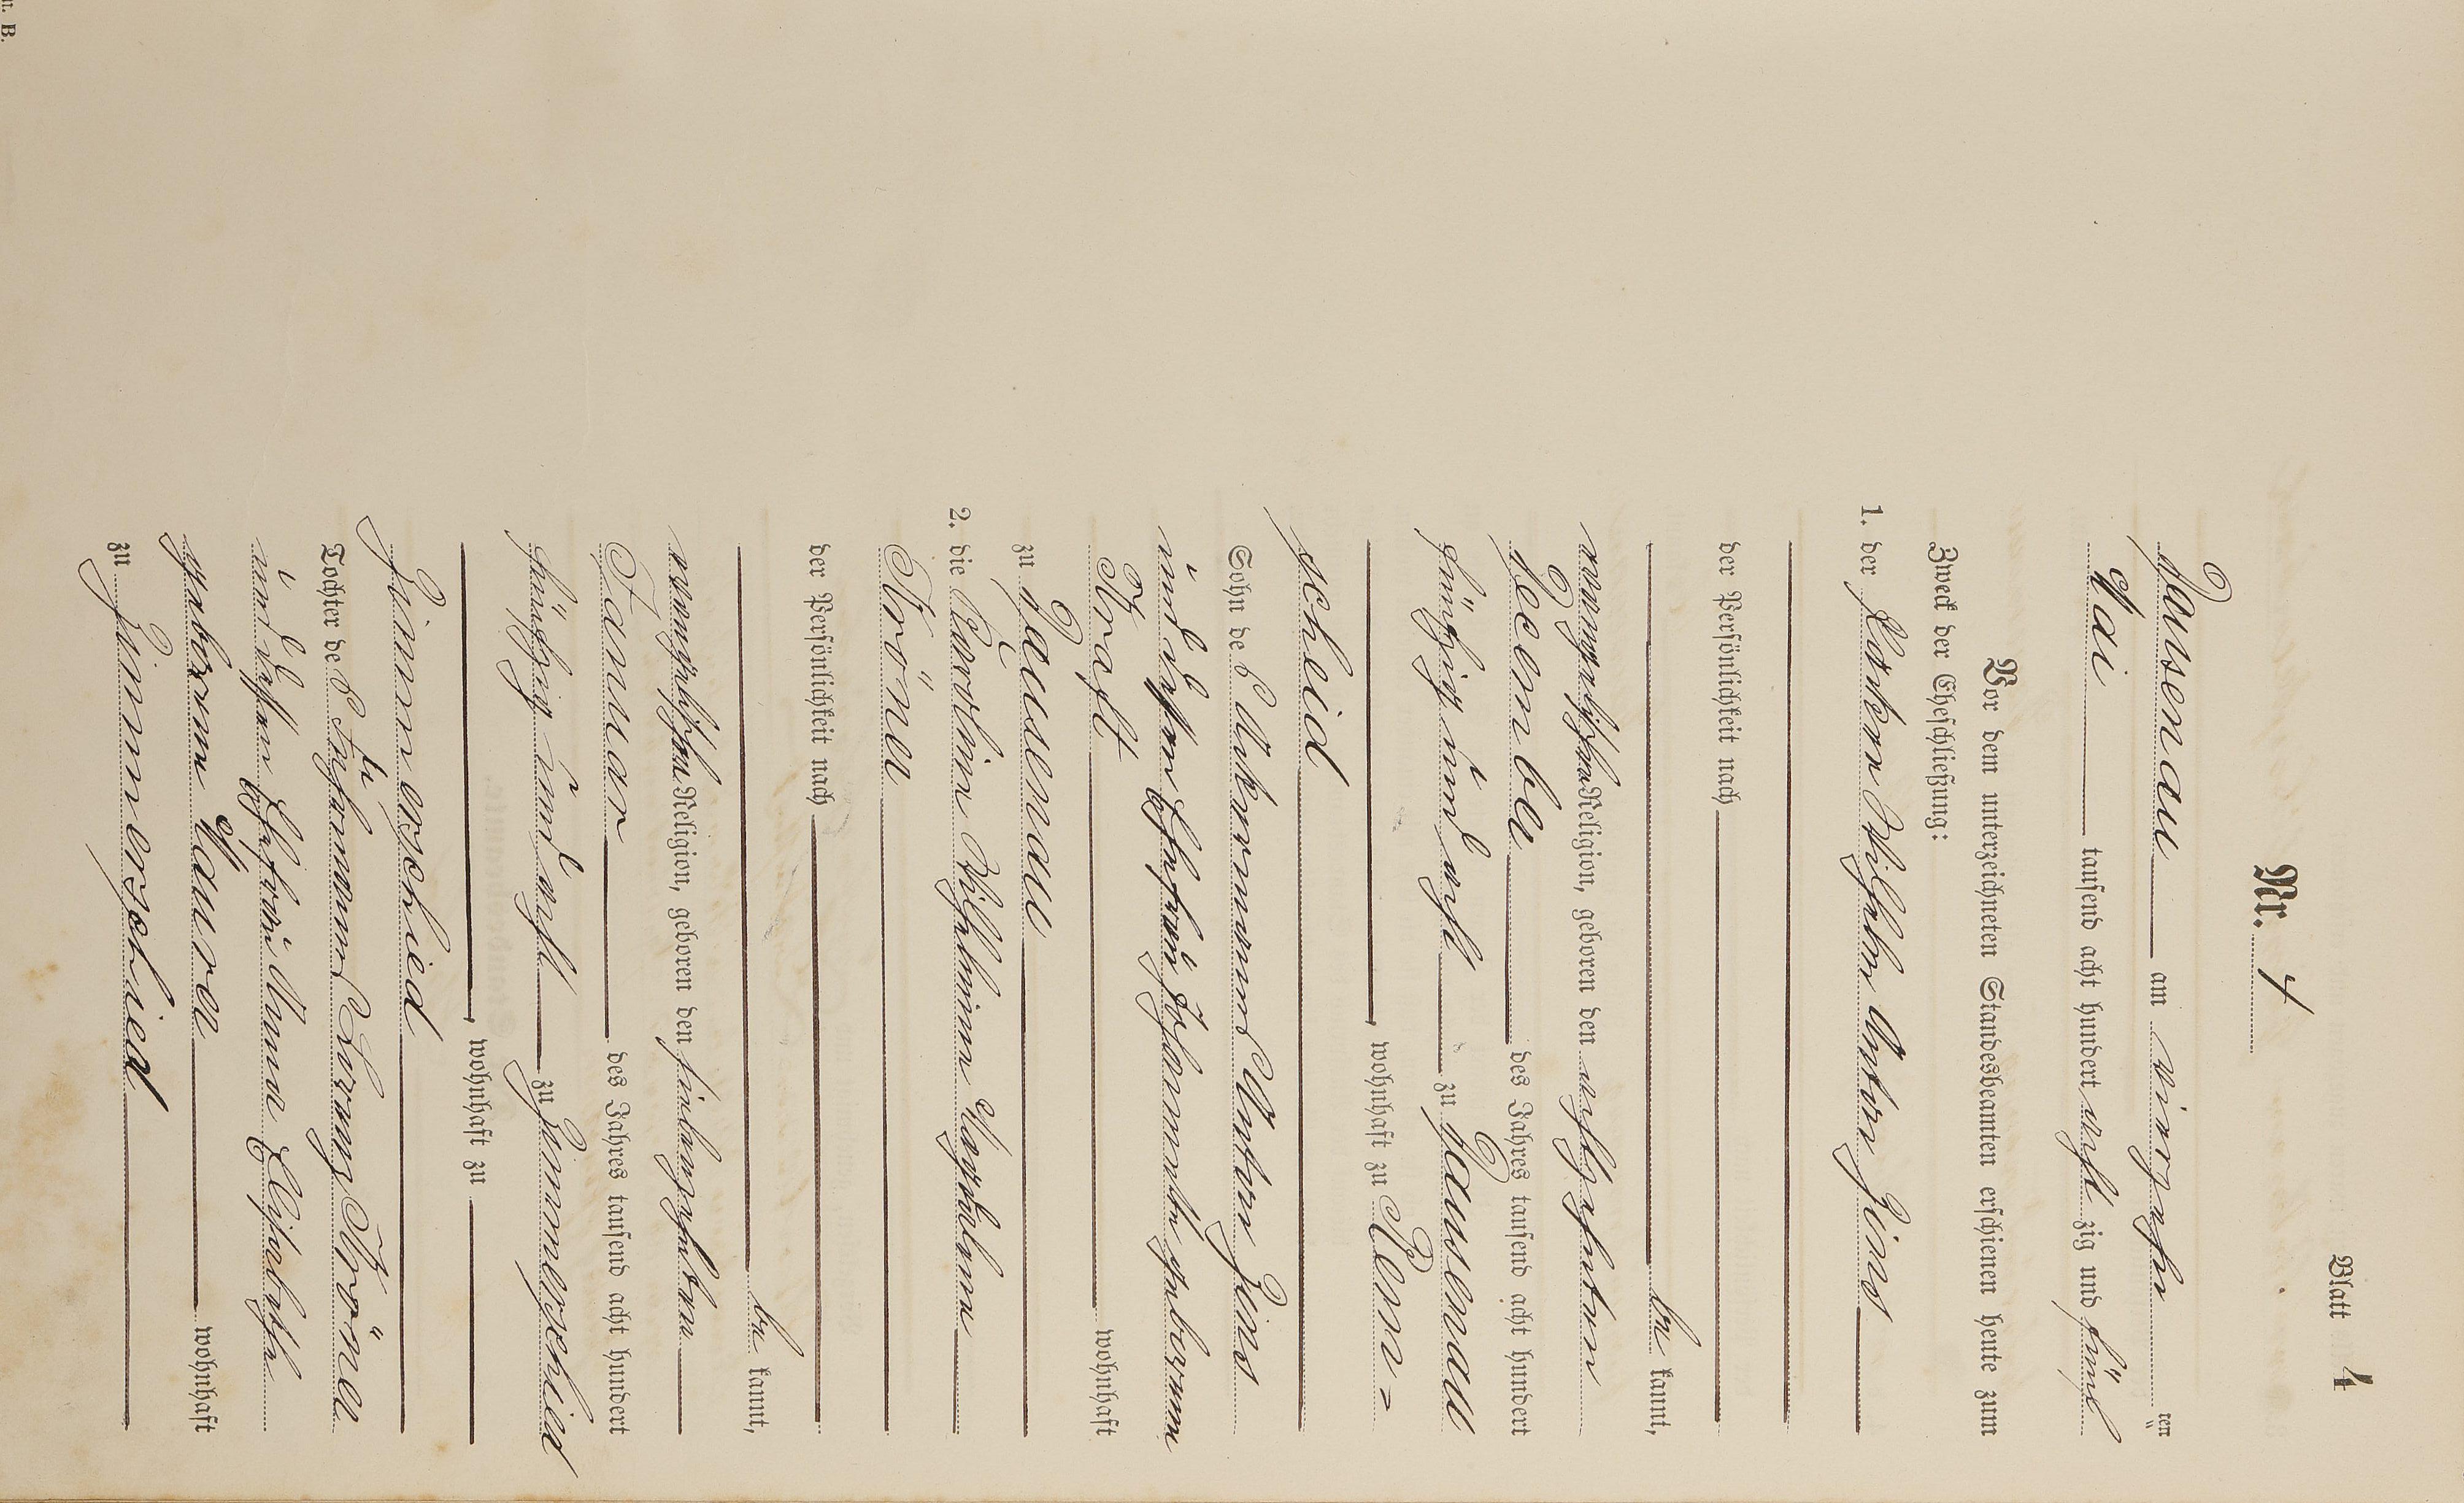 Blatt 4
Nr. 4
Dausenau am vierzehn ten
Mai tausend acht hundert acht zig und fünf
Vor dem unterzeichneten Standesbeamten erschienen heute zum
Zweck der Eheschließung:
1. der Wilhelm Anton
der Persönlichkeit nach
be kannt,
evangelischer Religion, geboren den achtzehnten
December des Jahres tausend acht hundert
fünfzig und acht zu Dausenau
wohnhaft zu Rem=
scheid
Sohn des Ackermanns Anton
und dessen Ehefrau Johannette geborenen
Kraft wohnhaft
zu Dausenau
2. die Caroline Wilhelmine Magdalene
Kröner
der Persönlichkeit nach
be kannt,
evangelischer Religion, geboren den siebenzehnten
Januar des Jahres tausend acht hundert
fünfzig und acht zu Zimmerschied
wohnhaft zu
Zimmerschied
Tochter des Lorenz Kröner
und dessen Ehefrau Anna Elisabeth
geborenen Maurer wohnhaft
zu Zimmerschied
u. B.